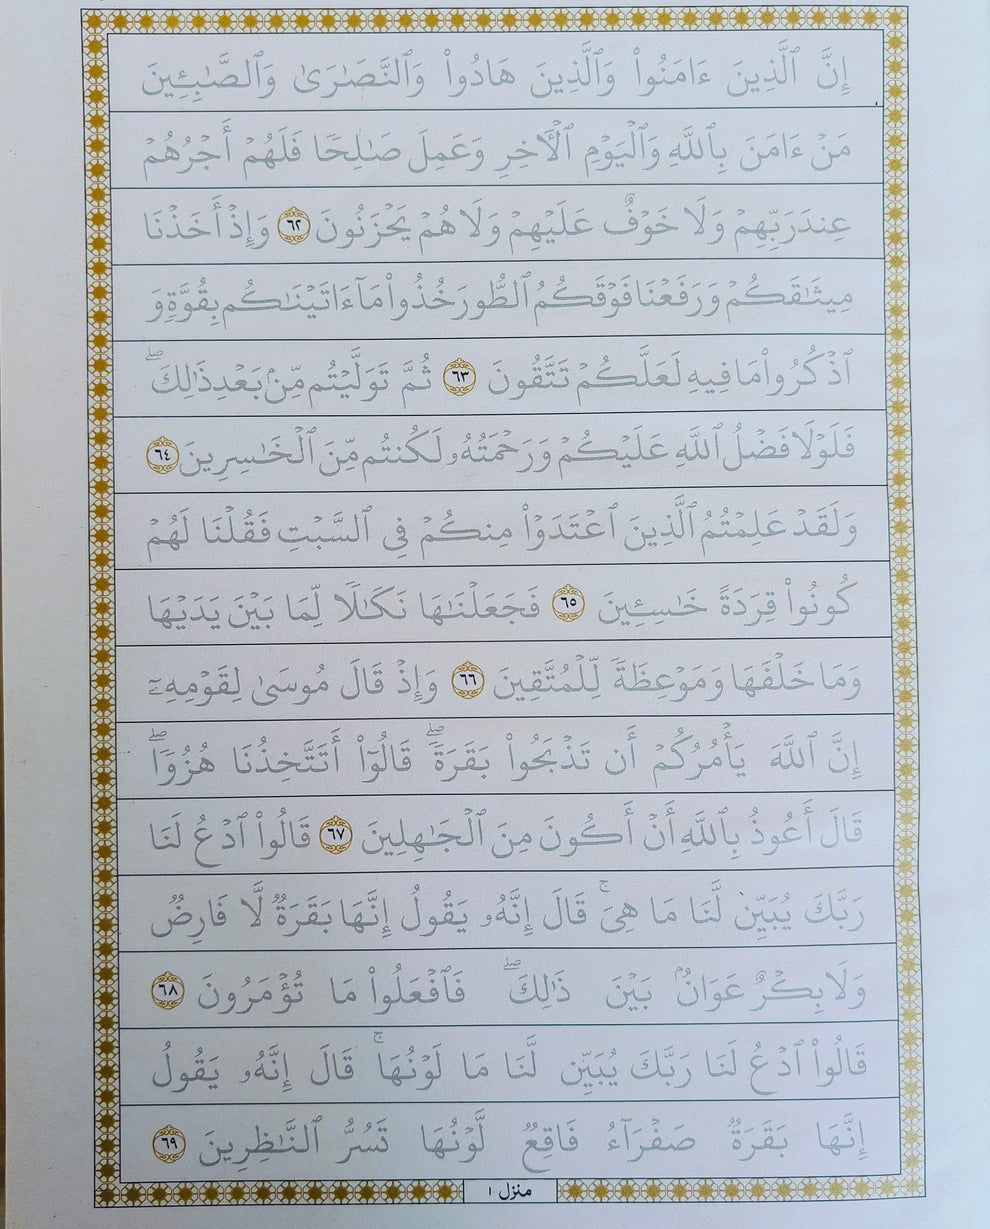 إِنَّ ٱلَّذِينَ ءَامَنُوا۟ وَٱلَّذِينَ هَادُوا۟ وَٱلنَّصَـٰرَىٰ وَٱلصَّـٰبِـِٔينَ
مَنْ ءَامَنَ بِٱللَّهِ وَٱلْيَوْمِ ٱلْـَٔاخِرِ وَعَمِلَ صَـٰلِحًا فَلَهُمْ أَجْرُهُمْ
عِندَ رَبِّهِمْ وَلَا خَوْفٌ عَلَيْهِمْ وَلَا هُمْ يَحْزَنُونَ ٦٢ وَإِذْ أَخَذْنَا
مِيثَـٰقَكُمْ وَرَفَعْنَا فَوْقَكُمُ ٱلطُّورَ خُذُوا۟ مَآ ءَاتَيْنَـٰكُم بِقُوَّةٍ وَ
ٱذْكُرُوا۟ مَا فِيهِ لَعَلَّكُمْ تَتَّقُونَ ٦٣ ثُمَّ تَوَلَّيْتُم مِّنۢ بَعْدِ ذَٰلِكَ ۖ
فَلَوْلَا فَضْلُ ٱللَّهِ عَلَيْكُمْ وَرَحْمَتُهُۥ لَكُنتُم مِّنَ ٱلْخَـٰسِرِينَ ٦٤
وَلَقَدْ عَلِمْتُمُ ٱلَّذِينَ ٱعْتَدَوْا۟ مِنكُمْ فِى ٱلسَّبْتِ فَقُلْنَا لَهُمْ
كُونُوا۟ قِرَدَةً خَـٰسِـِٔينَ ٦٥ فَجَعَلْنَـٰهَا نَكَـٰلًا لِّمَا بَيْنَ يَدَيْهَا
وَمَا خَلْفَهَا وَمَوْعِظَةً لِّلْمُتَّقِينَ ٦٦ وَإِذْ قَالَ مُوسَىٰ لِقَوْمِهِۦٓ
إِنَّ ٱللَّهَ يَأْمُرُكُمْ أَن تَذْبَحُوا۟ بَقَرَةً ۖ قَالُوٓا۟ أَتَتَّخِذُنَا هُزُوًا ۖ
قَالَ أَعُوذُ بِٱللَّهِ أَنْ أَكُونَ مِنَ ٱلْجَـٰهِلِينَ ٦٧ قَالُوا۟ ٱدْعُ لَنَا
رَبَّكَ يُبَيِّن لَّنَا مَا هِىَ ۚ قَالَ إِنَّهُۥ يَقُولُ إِنَّهَا بَقَرَةٌ لَّا فَارِضٌ
وَلَا بِكْرٌ عَوَانٌۢ بَيْنَ ذَٰلِكَ ۖ فَٱفْعَلُوا۟ مَا تُؤْمَرُونَ ٦٨
قَالُوا۟ ٱدْعُ لَنَا رَبَّكَ يُبَيِّن لَّنَا مَا لَوْنُهَا ۚ قَالَ إِنَّهُۥ يَقُولُ
إِنَّهَا بَقَرَةٌ صَفْرَآءُ فَاقِعٌ لَّوْنُهَا تَسُرُّ ٱلنَّـٰظِرِينَ ٦٩
منزل ١